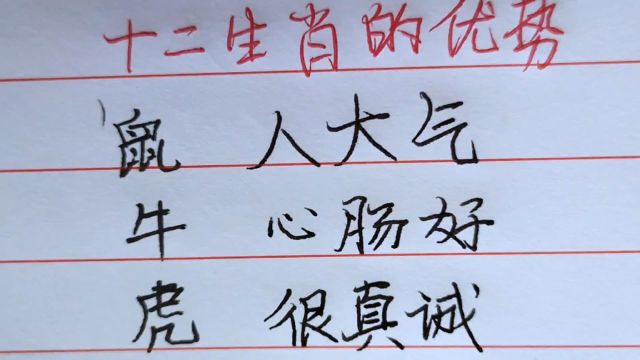 十二生肖的优势
鼠 人大气
牛 心肠好
虎 很真诚